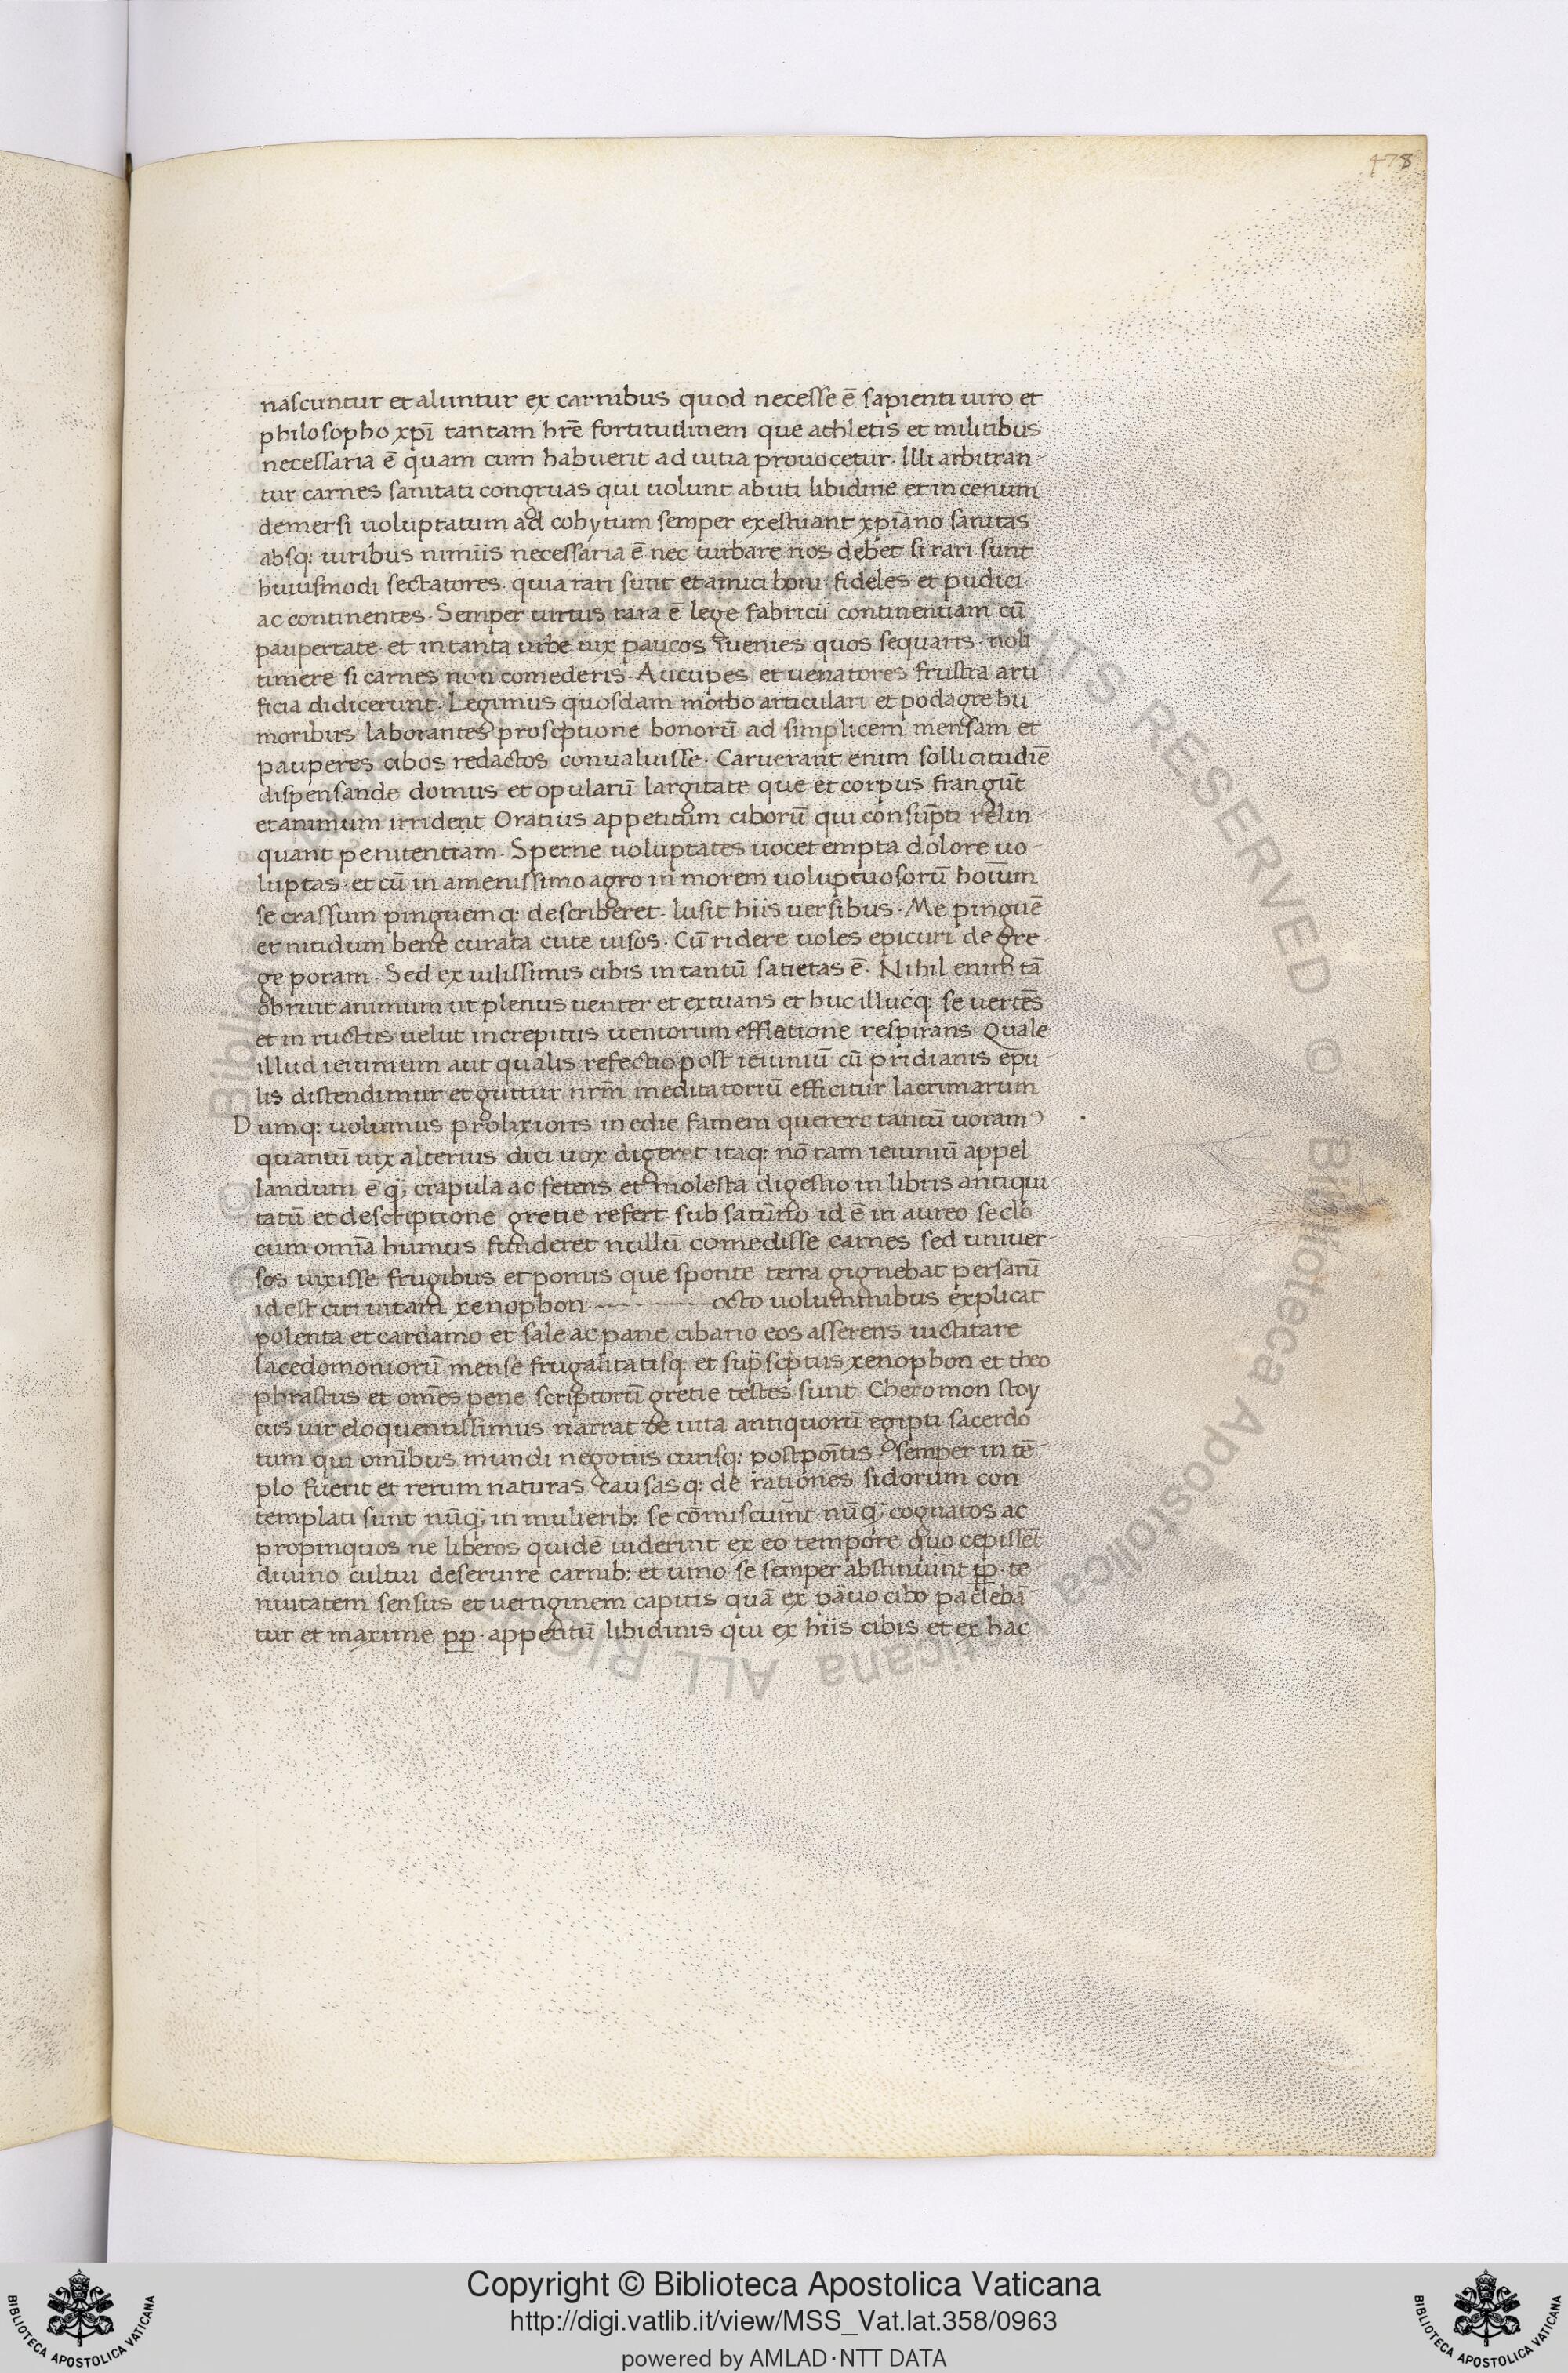 478
nascuntur et aluntur ex carnibus quod necesse ē sapienti uiro et
philosopho xp̄i tantam hr̄e fortitudinem que athletis et militibus
necessaria ē quam cum habuerit ad uitia prouocetur. Illi arbitran-
tur carnes sanitati congruas qui uolunt abuti libidine et in cenum
demersi uoluptatum ad cohytum semper exestuant xp̄iano sanitas
absq: uiribus nimiis necessaria ē nec turbare nos debet si rari sunt
huiusmodi sectatores. quia rari sunt et amici boni. fideles et pudici.
ac continentes. Semper uirtus rara ē lege fabricii continentiam cū
paupertate. et in tanta urbe uix paucos īuenies quos sequaris. noli
timere si carnes non comederis. Aucupes et uenatores frustra arti
ficia didicerunt. Legimus quosdam morbo articulari et podagre hu
moribus laborantes proscptione bonorū ad simplicem mensam et
pauperes cibos redactos conualuisse. Caruerant enim sollicitudiē
dispensande domus et opularū largitate que et corpus frangūt
et animum irrident Oratius appetitum ciborū qui consūpti relin-
quant penitentiam. Sperne uoluptates uocet empta dolore uo-
luptas. et cū in amenissimo agro in morem uoluptuosorū hoīum
se crassum pinguemq: describeret. lusit hiis uersibus. Me pinguē
et nitidum bene curata cute uisos. Cū ridere uoles epicuri de gre-
ge poram. Sed ex uilissimis cibis in tantū satietas ē. Nihil enim tā
obruit animum ut plenus uenter et extuans et huc illucq: se uertēs
et in ructus uelut increpitus uentorum efflatione respirans. Quale
illud ieiunium aut qualis refectio post ieiuniū cū pridianis epu-
lis distendimur et guttur nr̄m meditatoriū efficitur lacrimarum
Dumq: uolumus prolixioris inedie famem querere tantū uoram
quantū uix alterius dici uox digeret itaq: nō tam ieiuniū appel
landum ē q̄ crapula ac fetens et molesta digestio in libris antiqui
tatū et descriptione gretie refert. sub saturno id ē in aureo seclo
cum omīa humus funderet nullū comedisse carnes sed uniuer-
sos uixisse frugibus et pomis que sponte terra gignebat persarū
id est ciri uitam xenophon octo uoluminibus explicat
polenta et cardamo et sale ac pane cibario eos asserens uictitare
lacedomoniorū mense frugalitatisq: et sup̄scptus xenophon et theo
phrastus et omēs pene scriptorū gretie testes sunt. Cheromon stoy
cus uir eloquentissimus narrat de uita antiquorū egipti sacerdo
tum qui omībus mundi negotiis curisq: postpoītis. semper in tē-
plo fuerit et rerum naturas causasq: de rationes sidorum con-
templati sunt nūq̄ in mulierib: se cōmiscuint nūq̄ cognatos ac
propinquos ne liberos quidē uiderint ex eo tempore quo cepissēt
diuino cultui deseruire carnib: et uino se semper abstinuint pp. te-
nuitatem sensus et uertiginem capitis quā ex paruo cibo patiebā-
tur et maxime pp. appetitū libidinis qui ex hiis cibis et ex hac
Copyright © Biblioteca Apostolica Vaticana
http://digi.vatlib.it/view/MSS_Vat.lat.358/0963
powered by AMLAD·NTT DATA
BIBLIOTECA APOSTOLICA VATICANA
BIBLIOTECA APOSTOLICA VATICANA